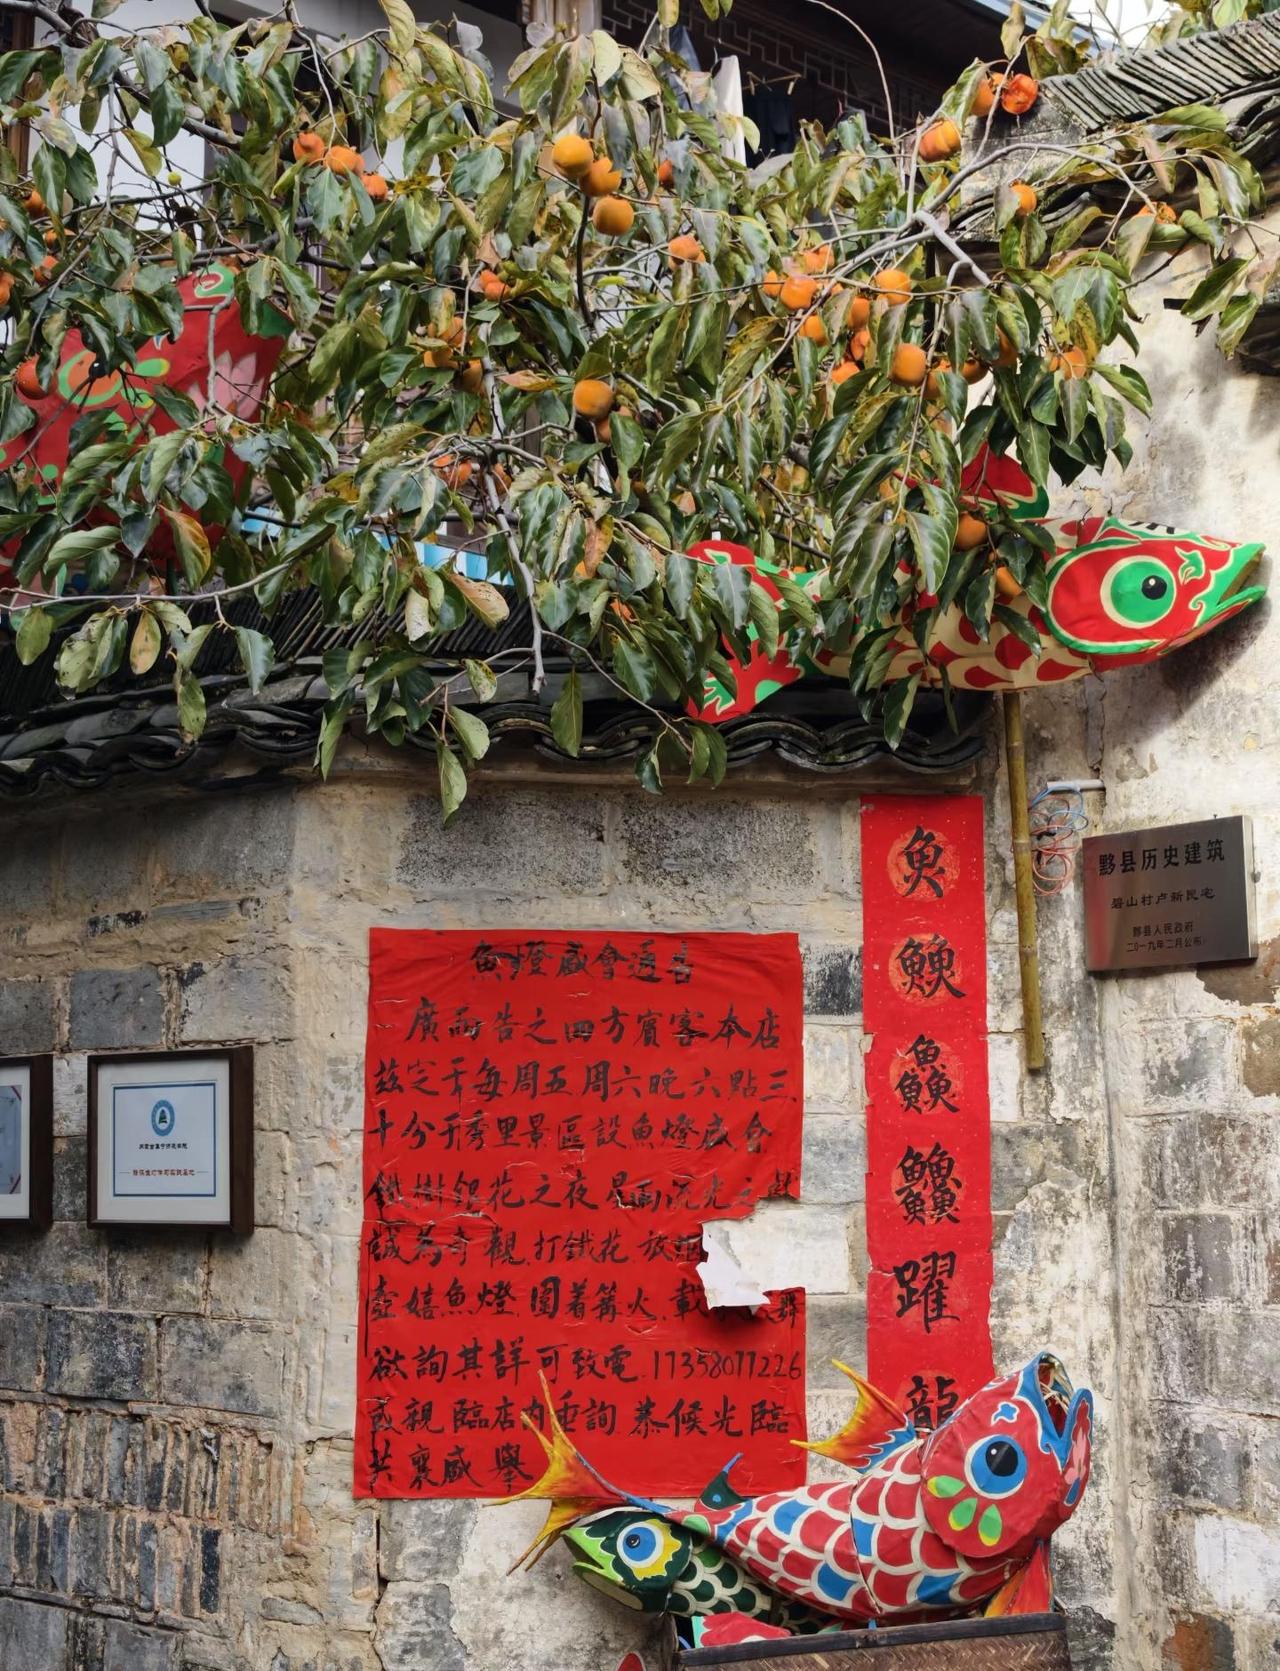 魚燈盛會通告
廣而告之四方賓客本店
茲定于每周五周六晚六點三
十分于秀里景區設魚燈盛會
鐵樹銀花之夜星雨流光之
誠為奇觀.打鐵花.放烟
壺嬉魚燈.圍着篝火.載
欲詢其詳可致電.17358077226
或親臨店內垂詢.恭候光臨
共襄盛舉
魚
䲆
鱻
䲜
躍
龍
黟县历史建筑
碧山村卢新民宅
黟县人民政府
二〇一九年二月公布